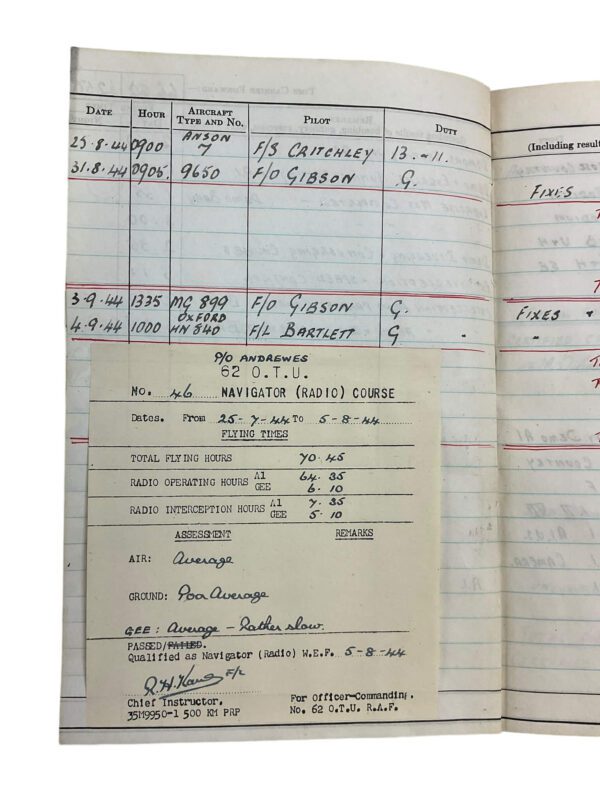 DATE HOUR AIRCRAFT TYPE AND NO. PILOT DUTY
25·8·44 0900 ANSON 7 F/S CRITCHLEY 13.-11.
31.8.44 0905. 9650 F/O GIBSON G.
3·9·44 1335 MG 899 F/O GIBSON G.
4.9.44 1000 OXFORD HN 840 F/L BARTLETT G "
P/O ANDREWES
62 O.T.U.
No. 46 NAVIGATOR (RADIO) COURSE
Dates. From 25-7-44 To 5-8-44
FLYING TIMES
TOTAL FLYING HOURS 70.45
RADIO OPERATING HOURS A1 64.35
GEE 6.10
RADIO INTERCEPTION HOURS A1 7.35
GEE 5.10
ASSESSMENT REMARKS
AIR: Average
GROUND: Poor Average
GEE: Average - Rather slow.
PASSED/FAILED.
Qualified as Navigator (Radio) W.E.F. 5-8-44
F/L
Chief Instructor. For Officer-Commanding.
35M9950-1 500 KM PRP No. 62 O.T.U. R.A.F.
(Including resul
FIXES
FIXES